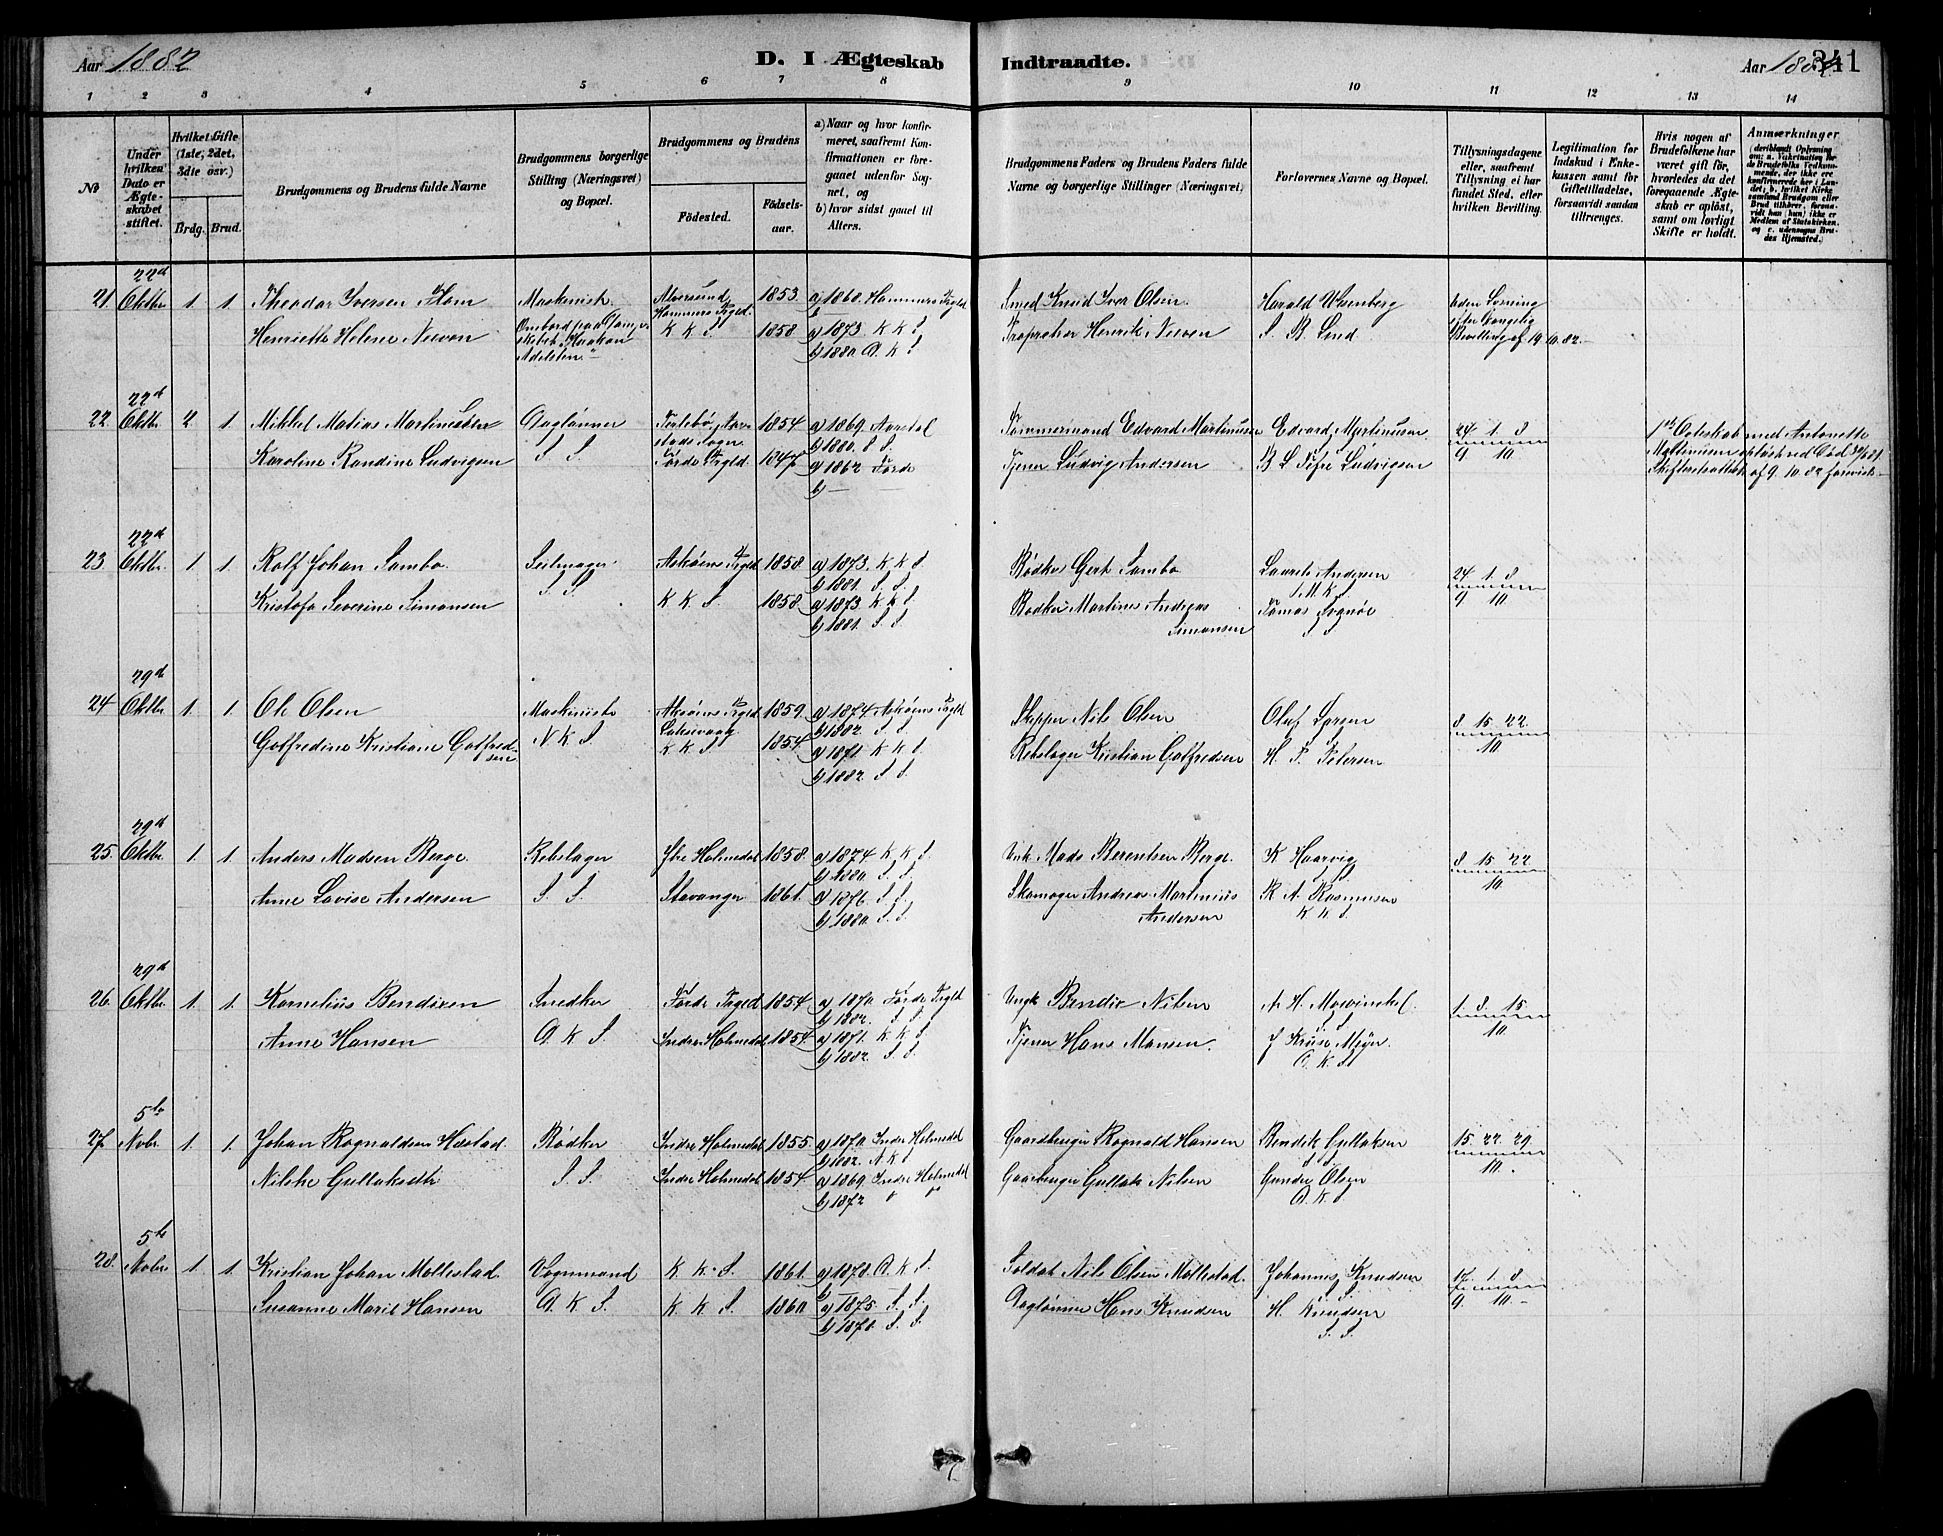 Aar 1882
D. I Ægteskab Indtraadte.
Aar 188
341
1 2 3 4 5 6 7 8 9 10 11 12 13 14
No
Under hvilken Dato er Ægteskabet stiftet.
Hvilket Gifte (1ste, 2det, 3die osv.)
Brdg. Brud.
Brudgommens og Brudens fulde Navne
Brudgommens borgerlige Stilling (Næringsvei) og Bopæl.
Brudgommens og Brudens
Födested.
Födselsaar.
a) Naar og hvor konfirmeret, saafremt Konfirmationen er foregaaet udenfor Sognet, og
b) hvor sidst gaaet til Alters.
Brudgommens Faders og Brudens Faders fulde Navne og borgerlige Stillinger (Næringsvei)
Forlovernes Navne og Bopæl.
Tillysningsdagene eller, saafremt Tillysning ei har fundet Sted, efter hvilken Bevilling.
Legitimation for Indskud i Enkekassen samt for Giftetilladelse, forsaavidt saadan tiltrænges.
Hvis nogen af Brudefolkene har været gift för, hvorledes da det foregaaende Ægteskab er oplöst, samt om lovligt Skifte er holdt.
Anmærkninger
22d
21. Oktbr. 1. 1. Theodor Iversen Hom Maskinist Alversund, Hammers Prgld. 1853. a) 1868. Hammers Prgld Smed Knud Iver Olsen. Harald Wesenberg Uden Lysning
Henriette Helene Neven Ombord paa Damp-skibet "Haakon Adelsten" K K S 1858. a) 1873. K K S Proprietær Henrik Neven S. B. Lind Bevilling af 19. 10. 82.
b) 1880 D. K S
22d
22. Oktbr. 2. 1. Mikkel Matias Martinussen Daglønner 1854 a) 1869. Tømmermand Edvard Martinusen Edvard Martinusen 24 1. 8
b) 1880. S S
Karoline Randine Ludvigsen S S. Førde Prgld. 1847 a) 1862 Førde Tjener Ludvig Andersen Ludvigsen 9 10
b) —
1ste Ægteskab med Antonette
af 9. 10. 82
22d
23. Oktbr. 1. 1. Rolf Johan Sambo Seilmager Askøens Prgld 1858. a) 1873. K K S Bødker Gert Sambo Laurits Andersen 24 1. 8
S. S. b) 1881. S. S.
Kristofa Severine Simonsen K K S. 1858. a) 1873. K K S Bødker Martines Andreas Simonsen Tomas Sognøe 9 10.
b) 1881. S S. S S
29d
24 Oktbr. 1. 1. Ole Olsen Maskiniste Askøens Prgld 1859. a) 1874 Askøens Prgld Skipper Nils Olsen Oluf Larsen 8 15. 22.
b) 1882 S S
Gotfredine Kristiane Gotfredsen N K S. K K S 1854. a) 1871. K K S. Rebslager Kristian Gotfredsen H. P. Petersen 10
b) 1882. S S.
29d
25. Oktbr. 1. 1. Anders Madsen Berge. Rebslager Ytre Holmedal 1858. a) 1874 K K S. Mads Berentsen Berge. K Haarvig 8 15. 22
b) 1880. S S
Anne Lovise Andersen S. S. Stavanger 1861. a) 1876. S S. Skomager Andreas Martinius Andersen R A. Rasmusen 10.
b) 1880. S S. K K S
29d
26. Oktbr. 1. 1. Kornelius Bendixen Snedker Førde Prgld. 1854 a) 1870. Førde Prgld Bendix Nilsen A. H. Mowinckel. 1. 8. 15
b) 1882. S S
Anne Hansen D. K S. Indre Holmedal 1854 a) 1871. K K S Tjener Hans Mansen. J Kruse Meyer 10.
b) 1882. S S. D. K. S
5te
27 Novbr. 1. 1. Johan Rognaldsen Hæstad. Bødker Indre Holmedal 1855. a) 1870. Indre Holmedal Gaardbruger Rognald Hansen Bendik Gullaksen 15. 22. 29.
b) 1882. N K S
Nilske Gullaksdtr S. S. Indre Holmedal 1854 a) 1869. Indre Holmedal Gaarbruger Gullak Nilsen Gunder Olsen 10.
b) 1872 D. K S
5te
28. Novbr 1. 1. Kristian Johan Mollestad. Vognmand K. K. S. 1861. a) 1878. D. K. S. Soldat Nils Olsen Mollestad. Johannes Knudsen 17. 1. 8.
b) — S S.
Susanne Marie Hansen D. K S. K K S. 1860 a) 1875. S S. Daglønner Hans Knudsen H. Knudsen 9 10.
b) 1878. S S S S.